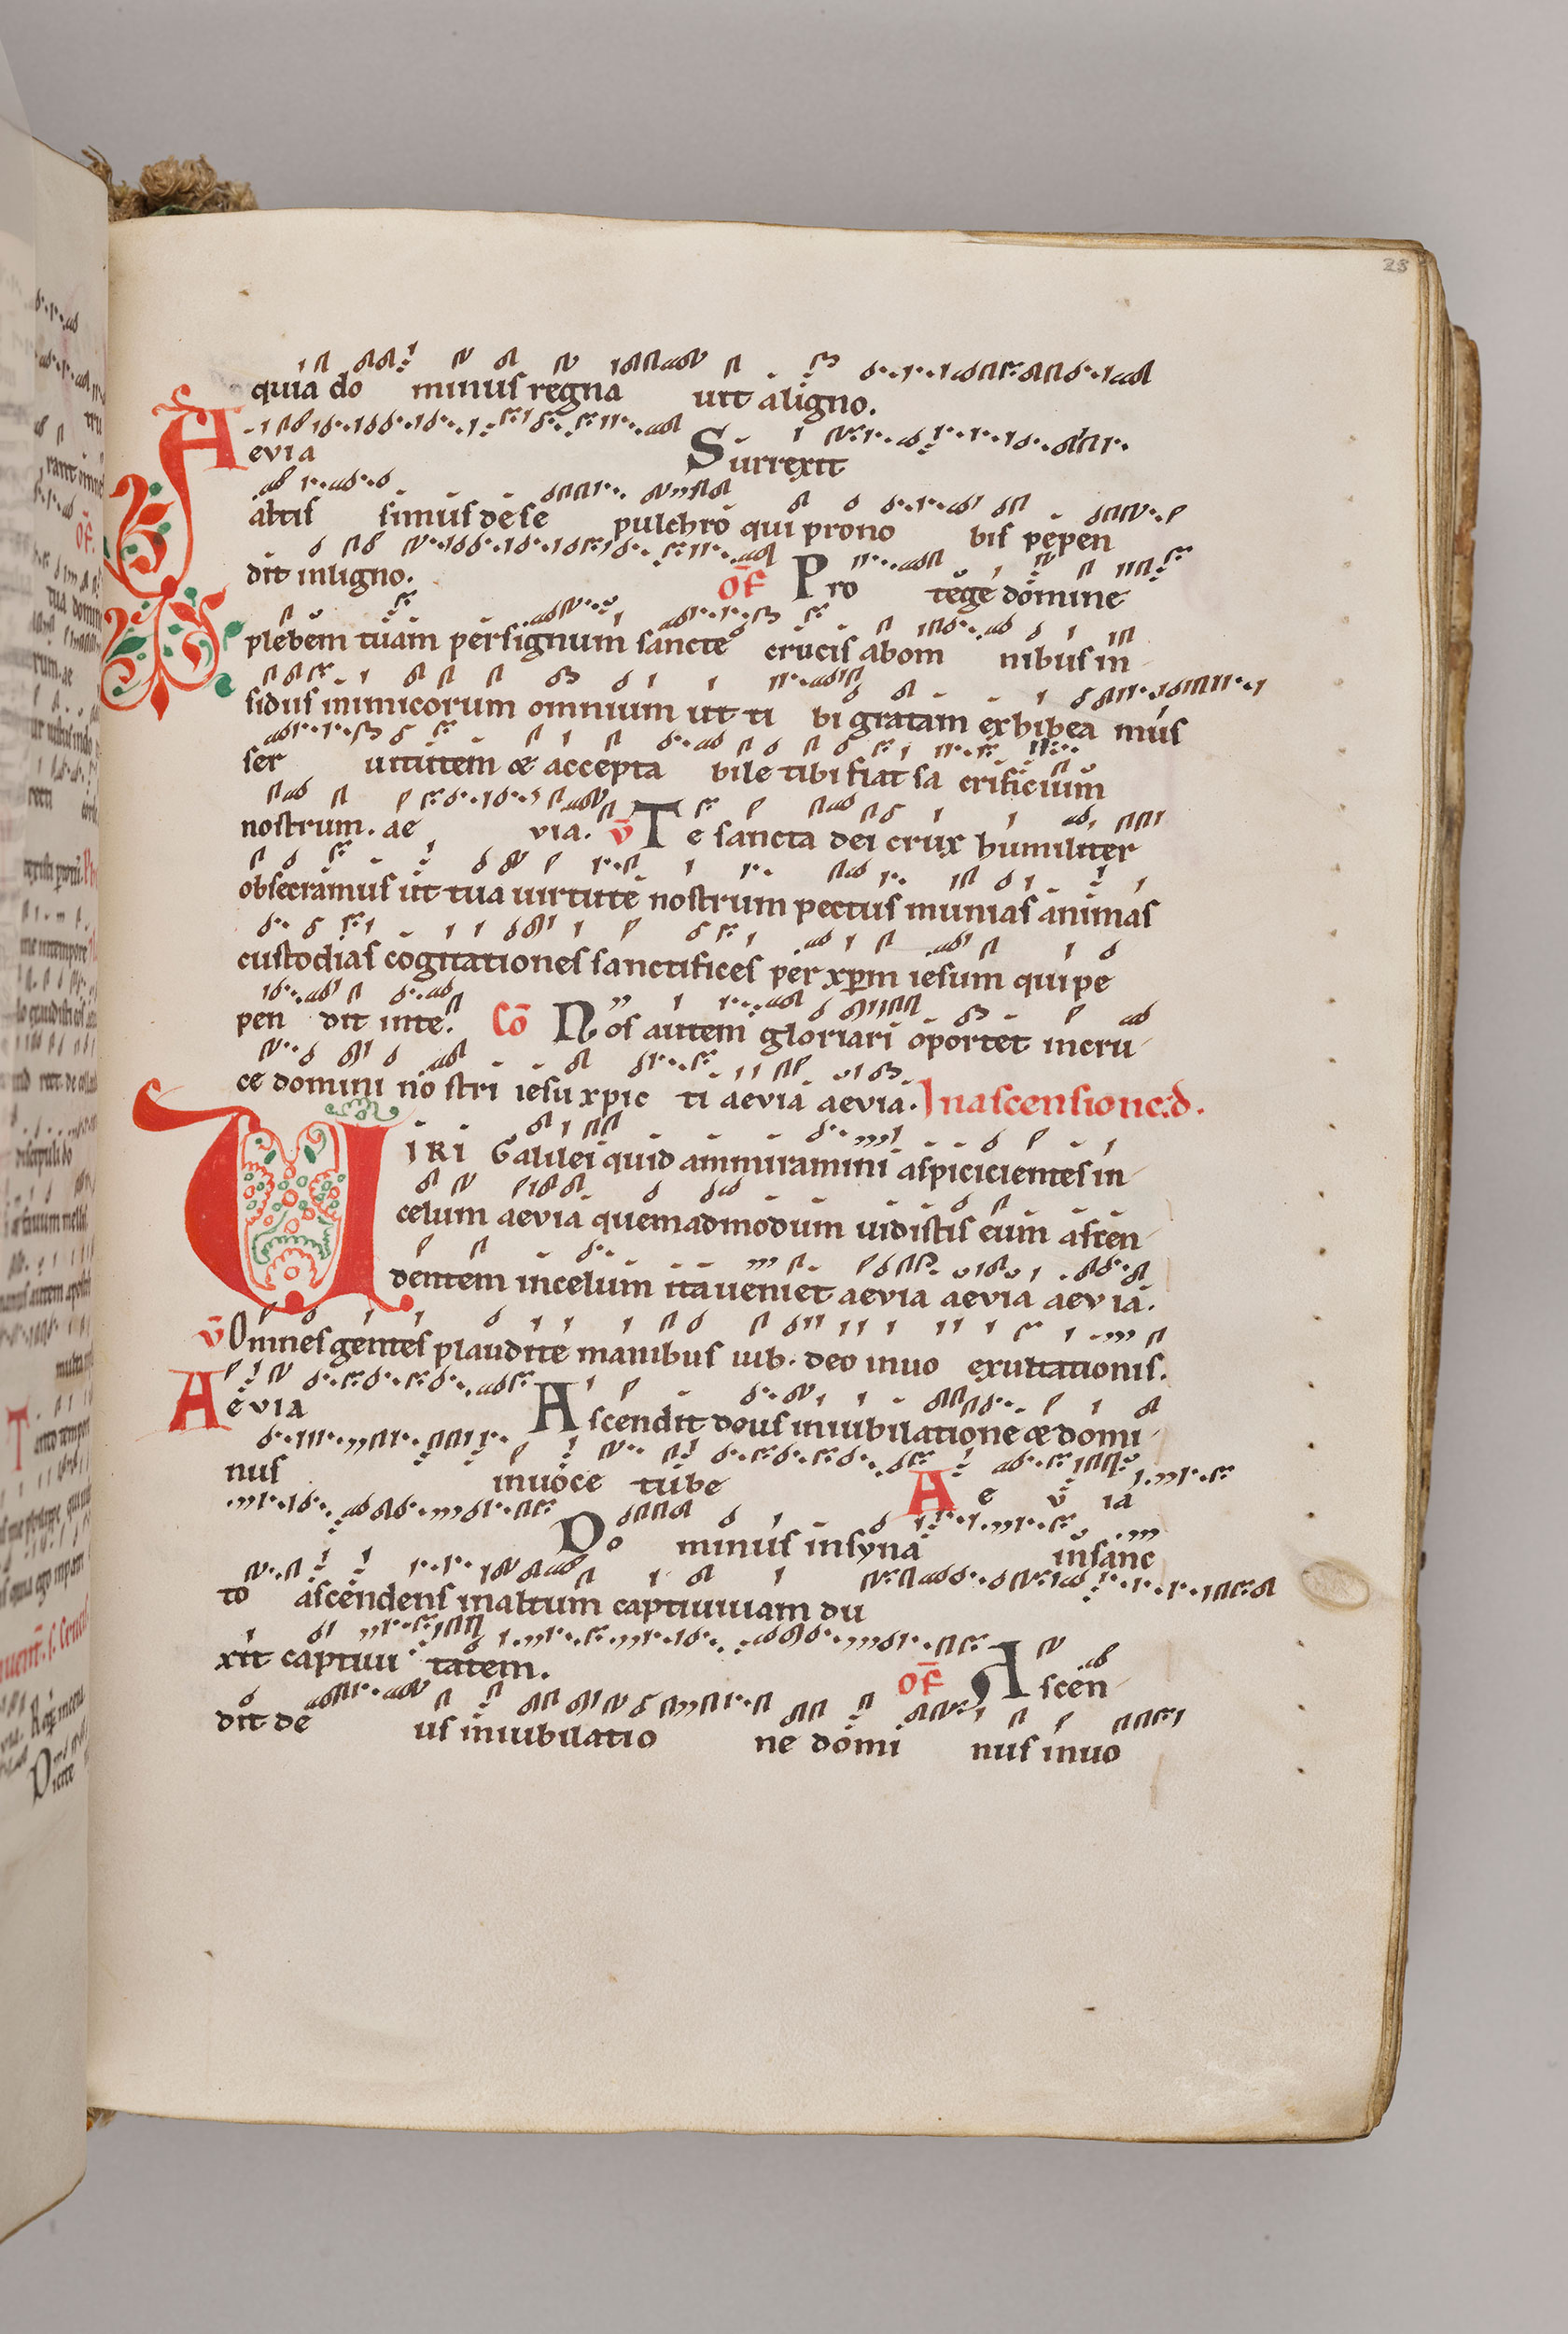 28
quia do minus regna uit aligno.
Aevia Surrexit
altis simus de se pulchro qui prono bis pepen
dit inligno. OF Pro tege domine
plebem tuam persignum sancte crucis abom nibus in
sidiis inimicorum omnium ut ti bi gratam exhibea mus
ser uitutem & accepta bile tibi fiat sa crificium
nostrum. ae via. V Te sancta dei crux humiliter
obsecramus ut tua uirtute nostrum pectus munias animas
custodias cogitationes sanctifices per xpm iesum qui pe
pen dit inte. Co Nos autem gloriari oportet incru
ce domini no stri iesu xpic ti aevia aevia. Inascensione.d.
VIRI Galilei quid ammiramini aspicicientes in
celum aevia quemadmodum uidistis eum ascen
dentem incelum ita ueniet aevia aevia aevia.
V Omnes gentes plaudite manibus iub. deo inuo exultationis.
Aevia Ascendit deus iniubilatione & domi
nus inuoce tube Ae v ia
Do minus insyna insanc
to ascendens inaltum captiuuiam du
xit captiui tatem. OF Ascen
dit de us iniubilatio ne domi nus inuo